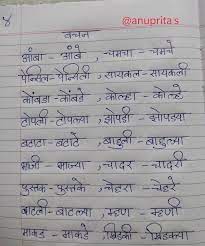 ४
@anuprita s
वचन
आंबा - आंबे , चमचा - चमचे
पेन्सिल - पेन्सिली , सायकल - सायकली
कोंबडा - कोंबडे , कोल्हा - कोल्हे
टोपली - टोपल्या , झोपडी - झोपड्या
बटाटा - बटाटे , बाहुली - बाहुल्या
भाजी - भाज्या , चादर - चादरी
पुस्तक - पुस्तके , चेहरा - चेहरे
बाटली - बाटल्या , म्हण - म्हणी
माकड - माकडे , खिडकी - खिडक्या